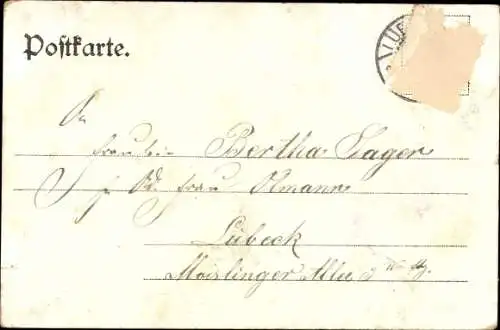 Postkarte.
LÜB
An
Fräulein Bertha Sager
Frau Olmann
Lübeck
Moislinger Allee